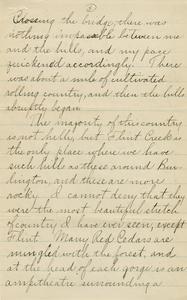 Crossing the bridge, there was
nothing impassable between me
and the hills, and my pace
quickened accordingly. There
was about a mile of cultivated
rolling country, and then the hills
abruptly began.
The majority of this country
is not hilly, but Flint Creek is
the only place where we have
such hills as these around Bur-
lington, and these are more
rocky. I cannot deny that they
were the most beautiful stretch
of country I have ever seen, except
Flint. Many Red Cedars are
mingled with the forest, and
at the head of each gorge is an
ampitheatre surrounding a